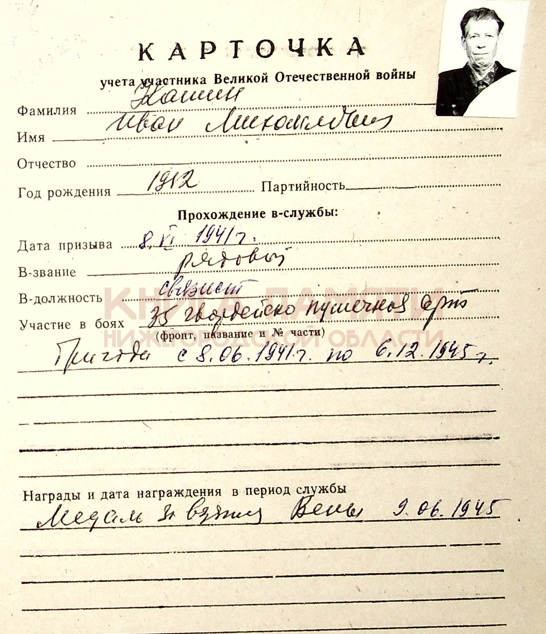 КАРТОЧКА
учета участника Великой Отечественной войны
Фамилия Кашин
Имя Иван Михайлович
Отчество
Год рождения 1912 Партийность
Прохождение в-службы:
Дата призыва 8.VI 1941 г.
В-звание рядовой
В-должность связист
КНИГА ПАМЯТИ
Участие в боях 35 гвардейско пушечной Арт
НИЖЕГОРОДСКОЙ ОБЛАСТИ
(фронт, название и № части)
Бригада с 8.06.1941 г. по 6.12.1945 г.
Награды и дата награждения в период службы
Медаль За взятия Вены 9.06.1945